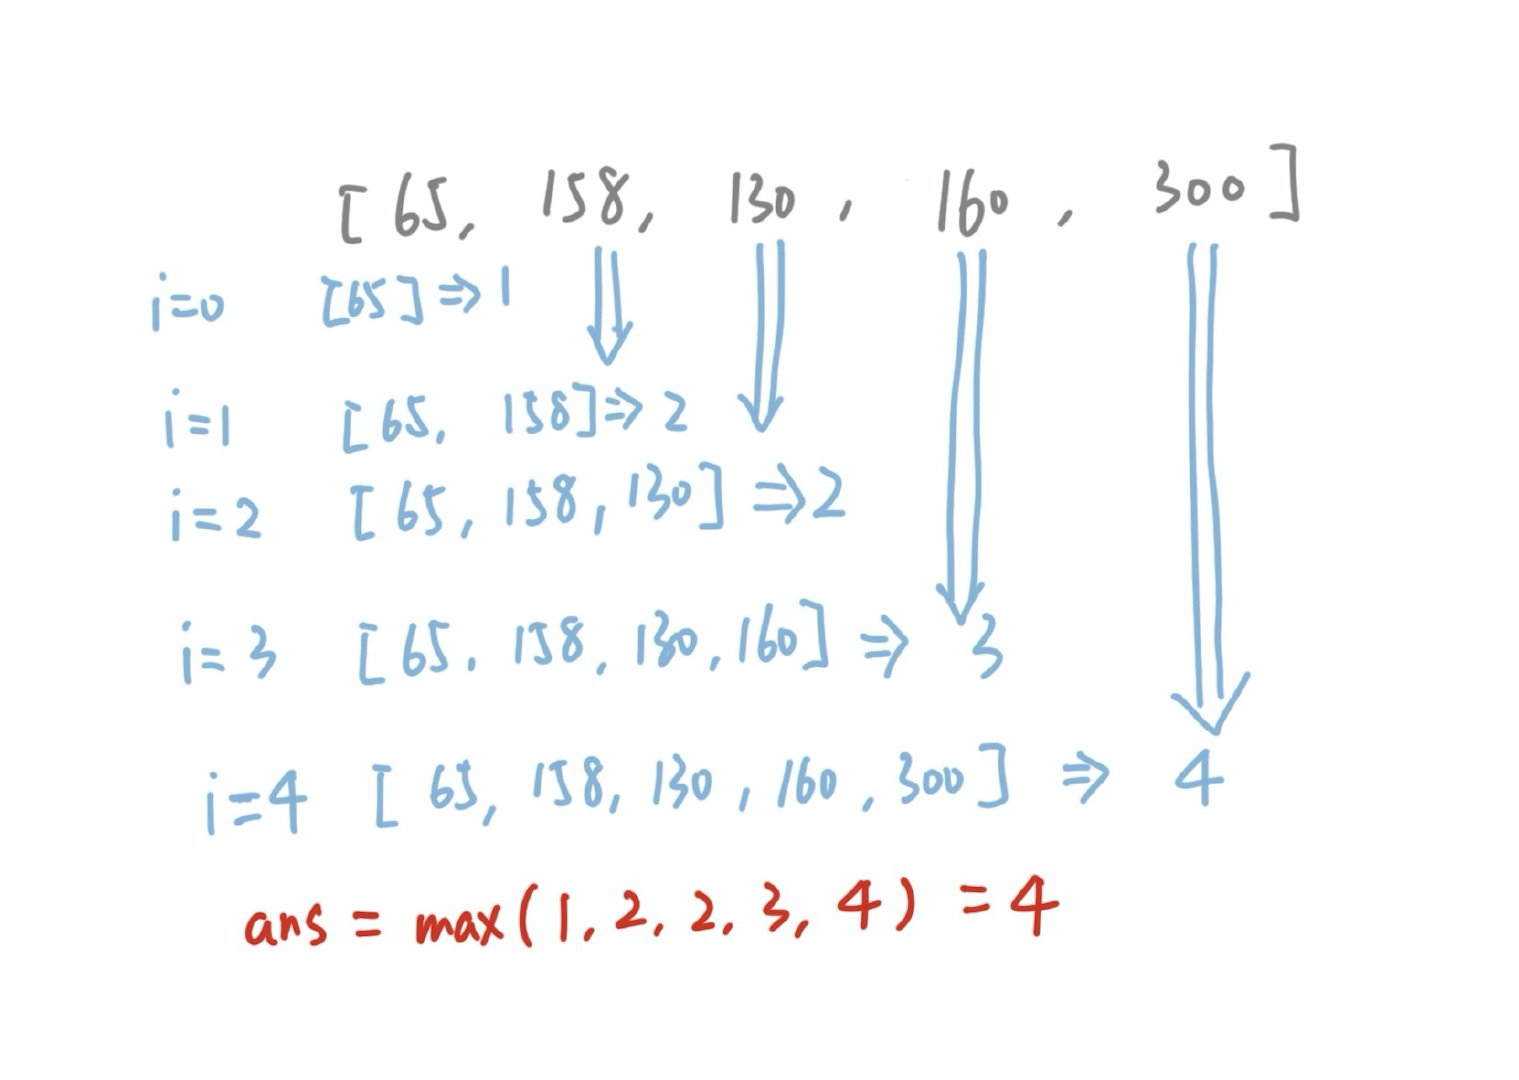 [ 65, 158, 130 , 160 , 300 ]
i=0 [65] ⇒ 1
i=1 [ 65, 158] ⇒ 2
i=2 [ 65, 158, 130] ⇒ 2
i=3 [ 65, 158, 130, 160] ⇒ 3
i=4 [ 65, 158, 130 , 160 , 300 ] ⇒ 4
ans = max( 1, 2, 2, 3, 4 ) = 4